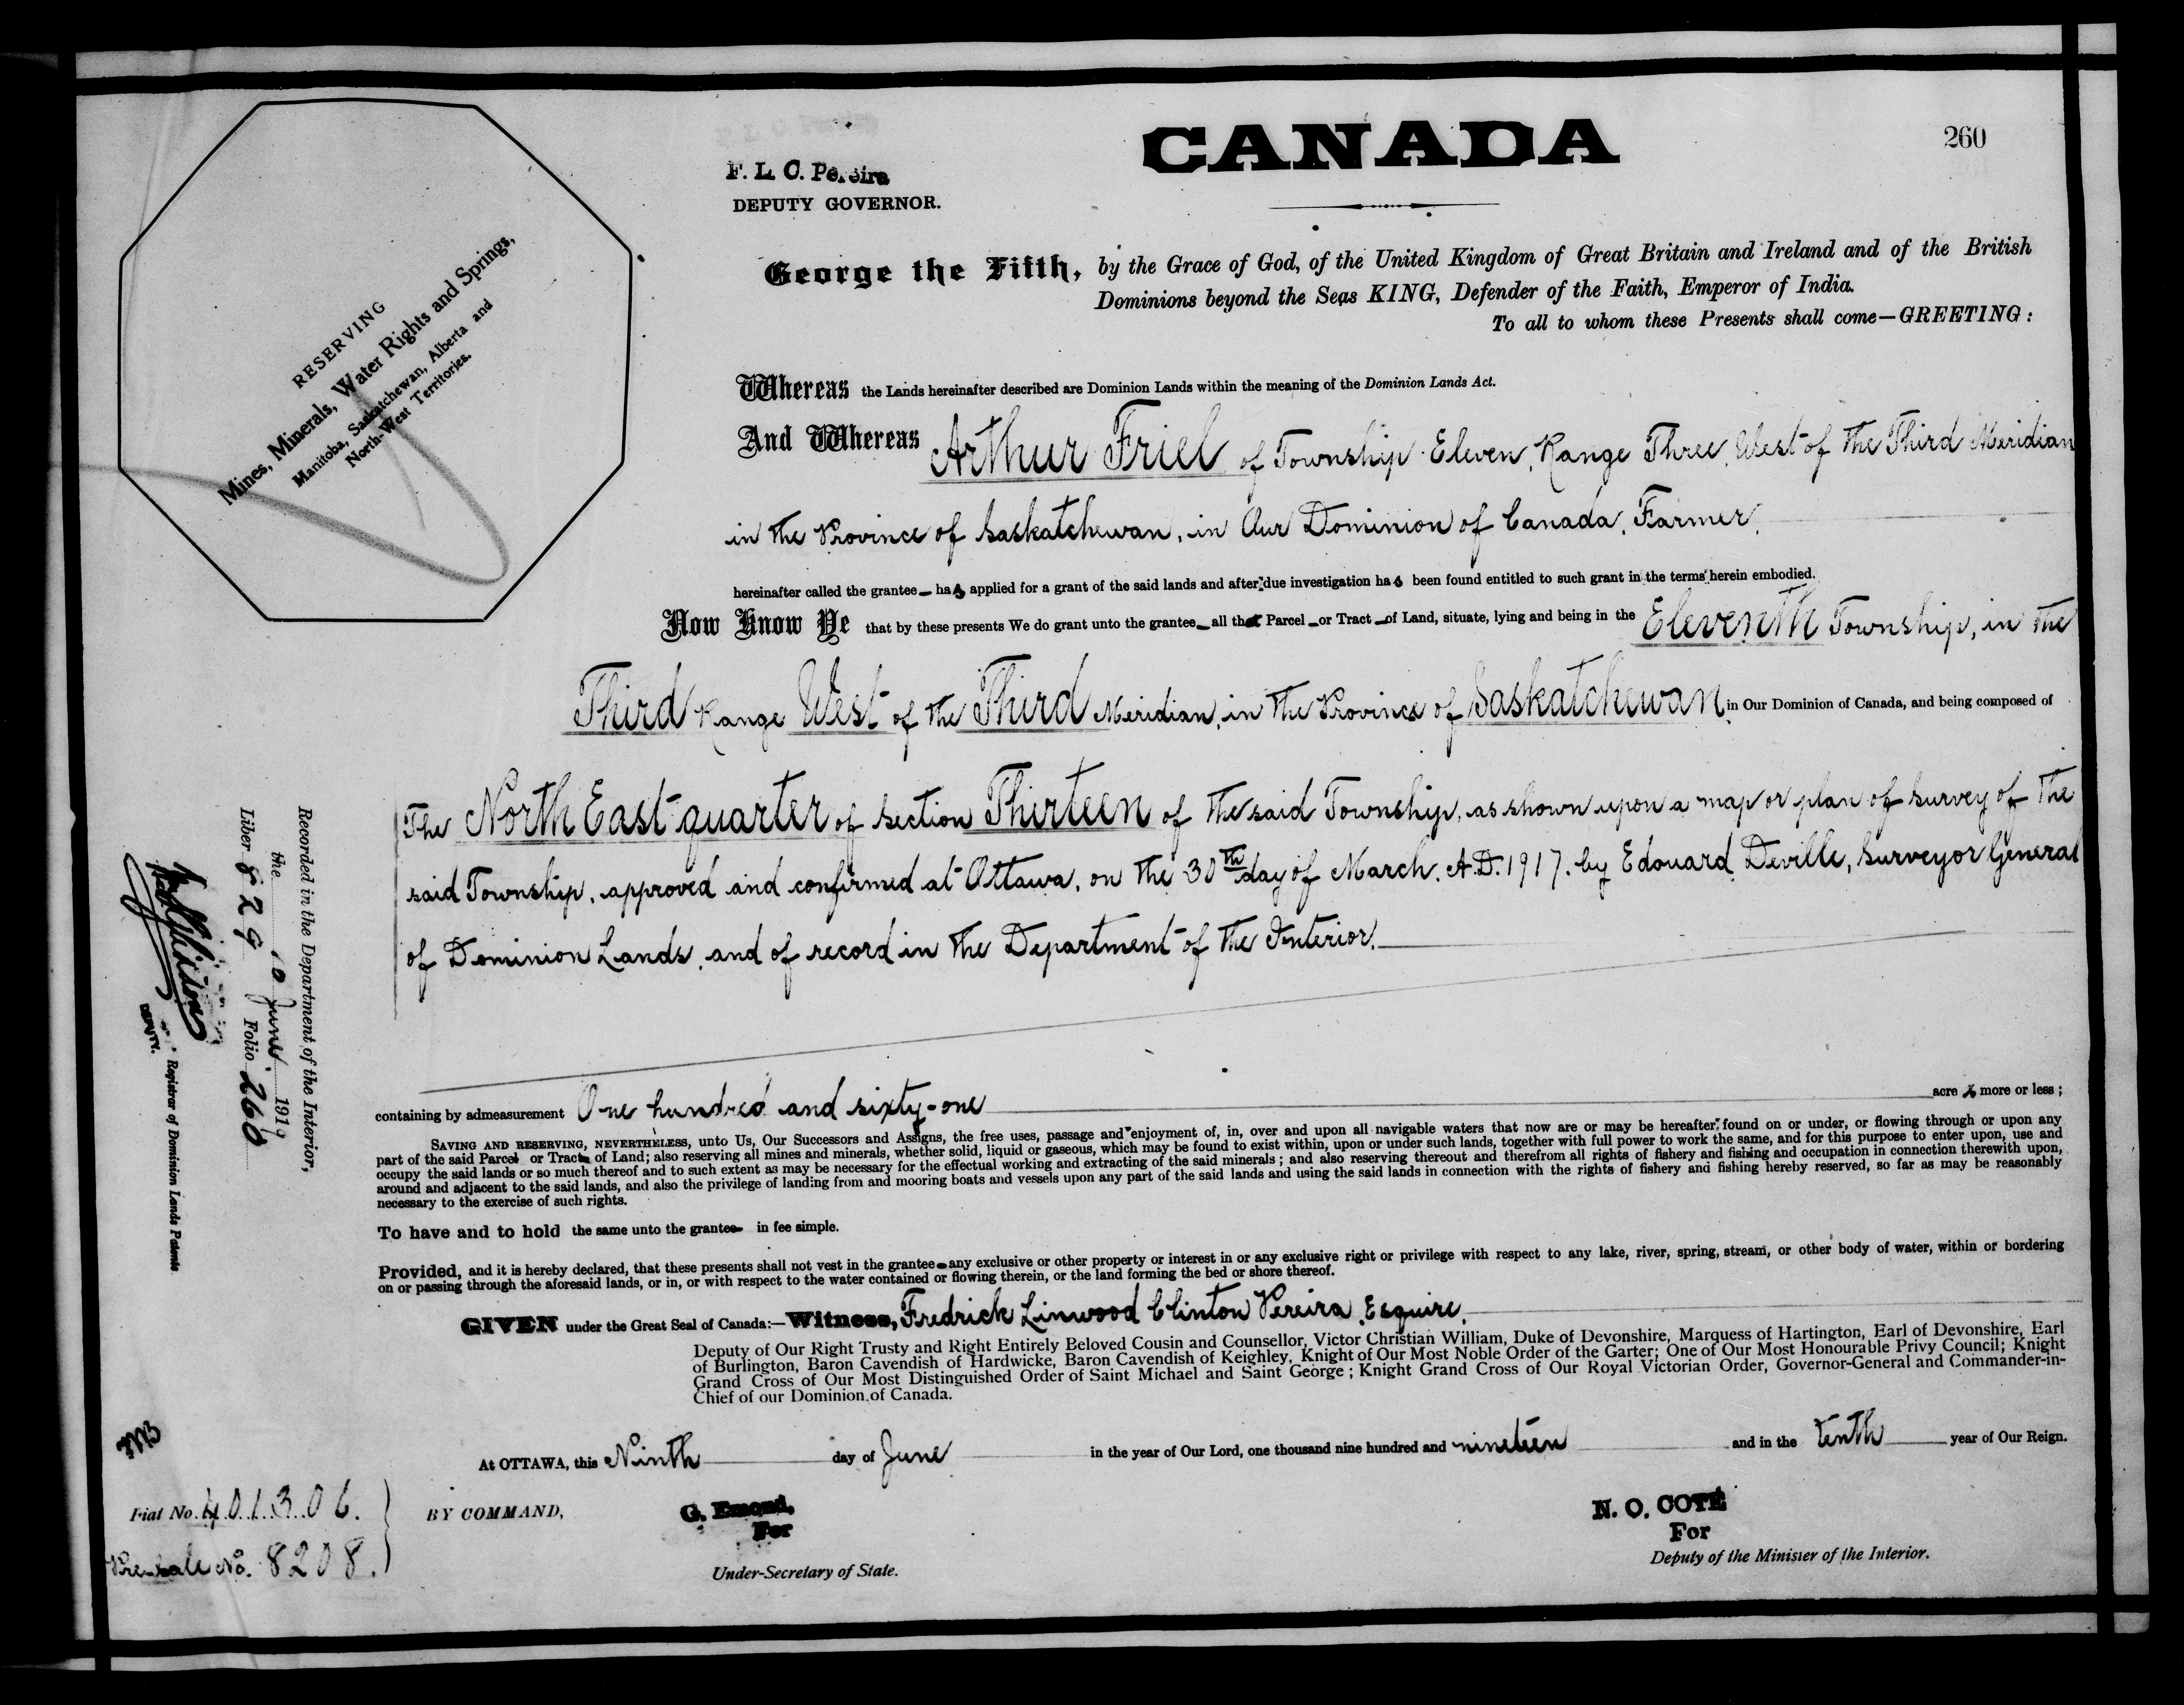 260
CANADA
F. L. C. Pereira
DEPUTY GOVERNOR.
RESERVING
Mines, Minerals, Water Rights and Springs,
Manitoba, Saskatchewan, Alberta and
North-West Territories.
George the Fifth, by the Grace of God, of the United Kingdom of Great Britain and Ireland and of the British
Dominions beyond the Seas KING, Defender of the Faith, Emperor of India.
To all to whom these Presents shall come—GREETING:
Whereas the Lands hereinafter described are Dominion Lands within the meaning of the Dominion Lands Act.
And Whereas Arthur Friel of Township Eleven, Range Three, West of the Third Meridian
in the Province of Saskatchewan, in Our Dominion of Canada, Farmer,
hereinafter called the grantee— has applied for a grant of the said lands and after due investigation has been found entitled to such grant in the terms herein embodied.
Now Know Ye that by these presents We do grant unto the grantee—all that Parcel—or Tract—of Land, situate, lying and being in the Eleventh Township, in the
Third Range West of the Third Meridian, in the Province of Saskatchewan in Our Dominion of Canada, and being composed of
The North East quarter of Section Thirteen of the said Township, as shown upon a map or plan of survey of the
said Township, approved and confirmed at Ottawa, on the 30th day of March, A.D. 1917, by Edouard Deville, Surveyor General
of Dominion Lands, and of record in the Department of the Interior,
containing by admeasurement One hundred and sixty-one acres more or less;
SAVING AND RESERVING, NEVERTHELESS, unto Us, Our Successors and Assigns, the free uses, passage and enjoyment of, in, over and upon all navigable waters that now are or may be hereafter found on or under, or flowing through or upon any
part of the said Parcel or Tract of Land; also reserving all mines and minerals, whether solid, liquid or gaseous, which may be found to exist within, upon or under such lands, together with full power to work the same, and for this purpose to enter upon, use and
occupy the said lands or so much thereof and to such extent as may be necessary for the effectual working and extracting of the said minerals; and also reserving thereout and therefrom all rights of fishery and fishing and occupation in connection therewith upon,
around and adjacent to the said lands, and also the privilege of landing from and mooring boats and vessels upon any part of the said lands and using the said lands in connection with the rights of fishery and fishing hereby reserved, so far as may be reasonably
necessary to the exercise of such rights.
To have and to hold the same unto the grantee— in fee simple.
Provided, and it is hereby declared, that these presents shall not vest in the grantee—any exclusive or other property or interest in or any exclusive right or privilege with respect to any lake, river, spring, stream, or other body of water, within or bordering
on or passing through the aforesaid lands, or in, or with respect to the water contained or flowing therein, or the land forming the bed or shore thereof.
GIVEN under the Great Seal of Canada:—Witness, Fredrick Linwood Clinton Pereira, Esquire,
Deputy of Our Right Trusty and Right Entirely Beloved Cousin and Counsellor, Victor Christian William, Duke of Devonshire, Marquess of Hartington, Earl of Devonshire, Earl
of Burlington, Baron Cavendish of Hardwicke, Baron Cavendish of Keighley, Knight of Our Most Noble Order of the Garter; One of Our Most Honourable Privy Council; Knight
Grand Cross of Our Most Distinguished Order of Saint Michael and Saint George; Knight Grand Cross of Our Royal Victorian Order, Governor-General and Commander-in-
Chief of our Dominion of Canada.
At OTTAWA, this Ninth day of June in the year of Our Lord, one thousand nine hundred and nineteen and in the tenth year of Our Reign.
BY COMMAND,
G. Emond,
For
Under-Secretary of State.
N. O. COTÉ
For
Deputy of the Minister of the Interior.
Fiat No. 401306.
Pre-sale No. 8208.
Recorded in the Department of the Interior,
the 10 June 1919
Liber 829 Folio 260
Registrar of Dominion Lands Patents
DEPUTY.